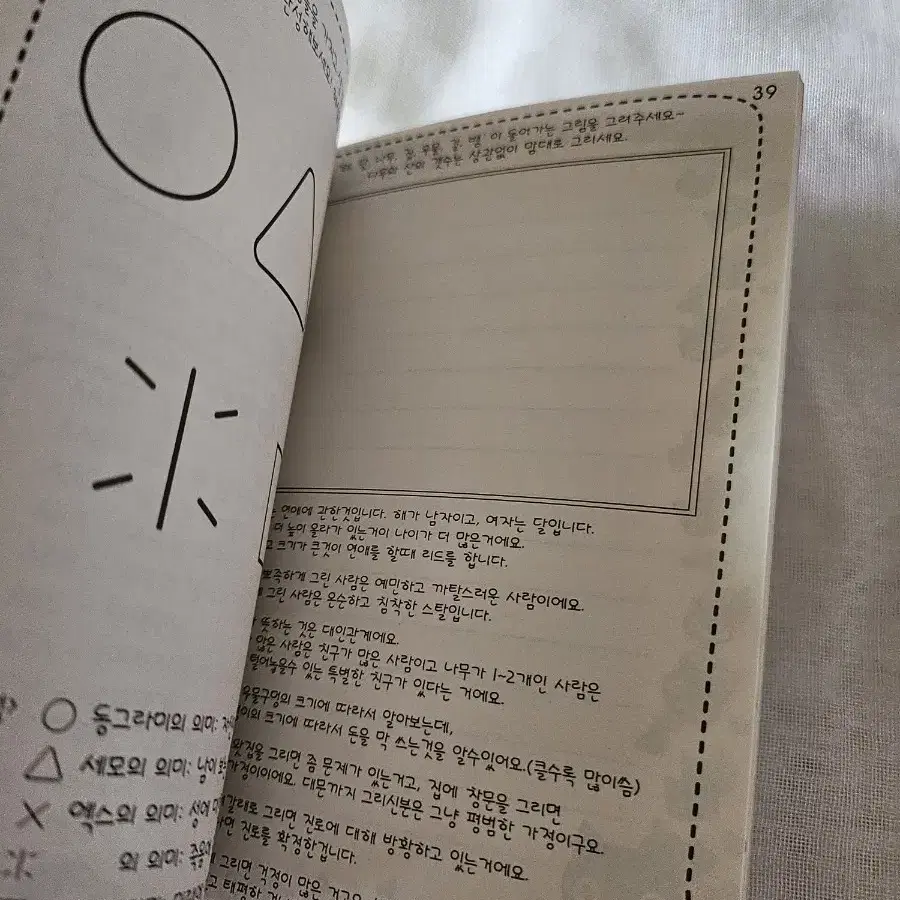 동그라미의 의미:
세모의 의미: 남이
엑스의 의미: 성에
의 의미: 죽음
39
해, 달, 나무, 집, 우물, 길, 뱀' 이 들어가는 그림을 그려주세요~
나무와 산의 갯수는 상관없이 맘대로 그리세요.
연애에 관한것입니다. 해가 남자이고, 여자는 달입니다.
더 높이 올라가 있는거이 나이가 더 많은거에요.
크기가 큰것이 연애를 할때 리드를 합니다.
뾰족하게 그린 사람은 예민하고 까탈스러운 사람이에요.
그린 사람은 온순하고 침착한 스탈입니다.
뜻하는 것은 대인관계에요.
많은 사람은 친구가 많은 사람이고 나무가 1~2개인 사람은
털어놓을수 있는 특별한 친구가 있다는 거에요.
우물구멍의 크기에 따라서 알아보는데,
의 크기에 따라서 돈을 막 쓰는것을 알수있어요.(클수록 많이씀)
집을 그리면 좀 문제가 있는거고, 집에 창문을 그리면
가정이이에요. 대문까지 그리신분은 그냥 평범한 가정이구요.
갈래로 그리면 진로에 대해 방황하고 있는거에요.
면 진로를 확정한겁니다.
그리면 걱정이 많은
고 태평한